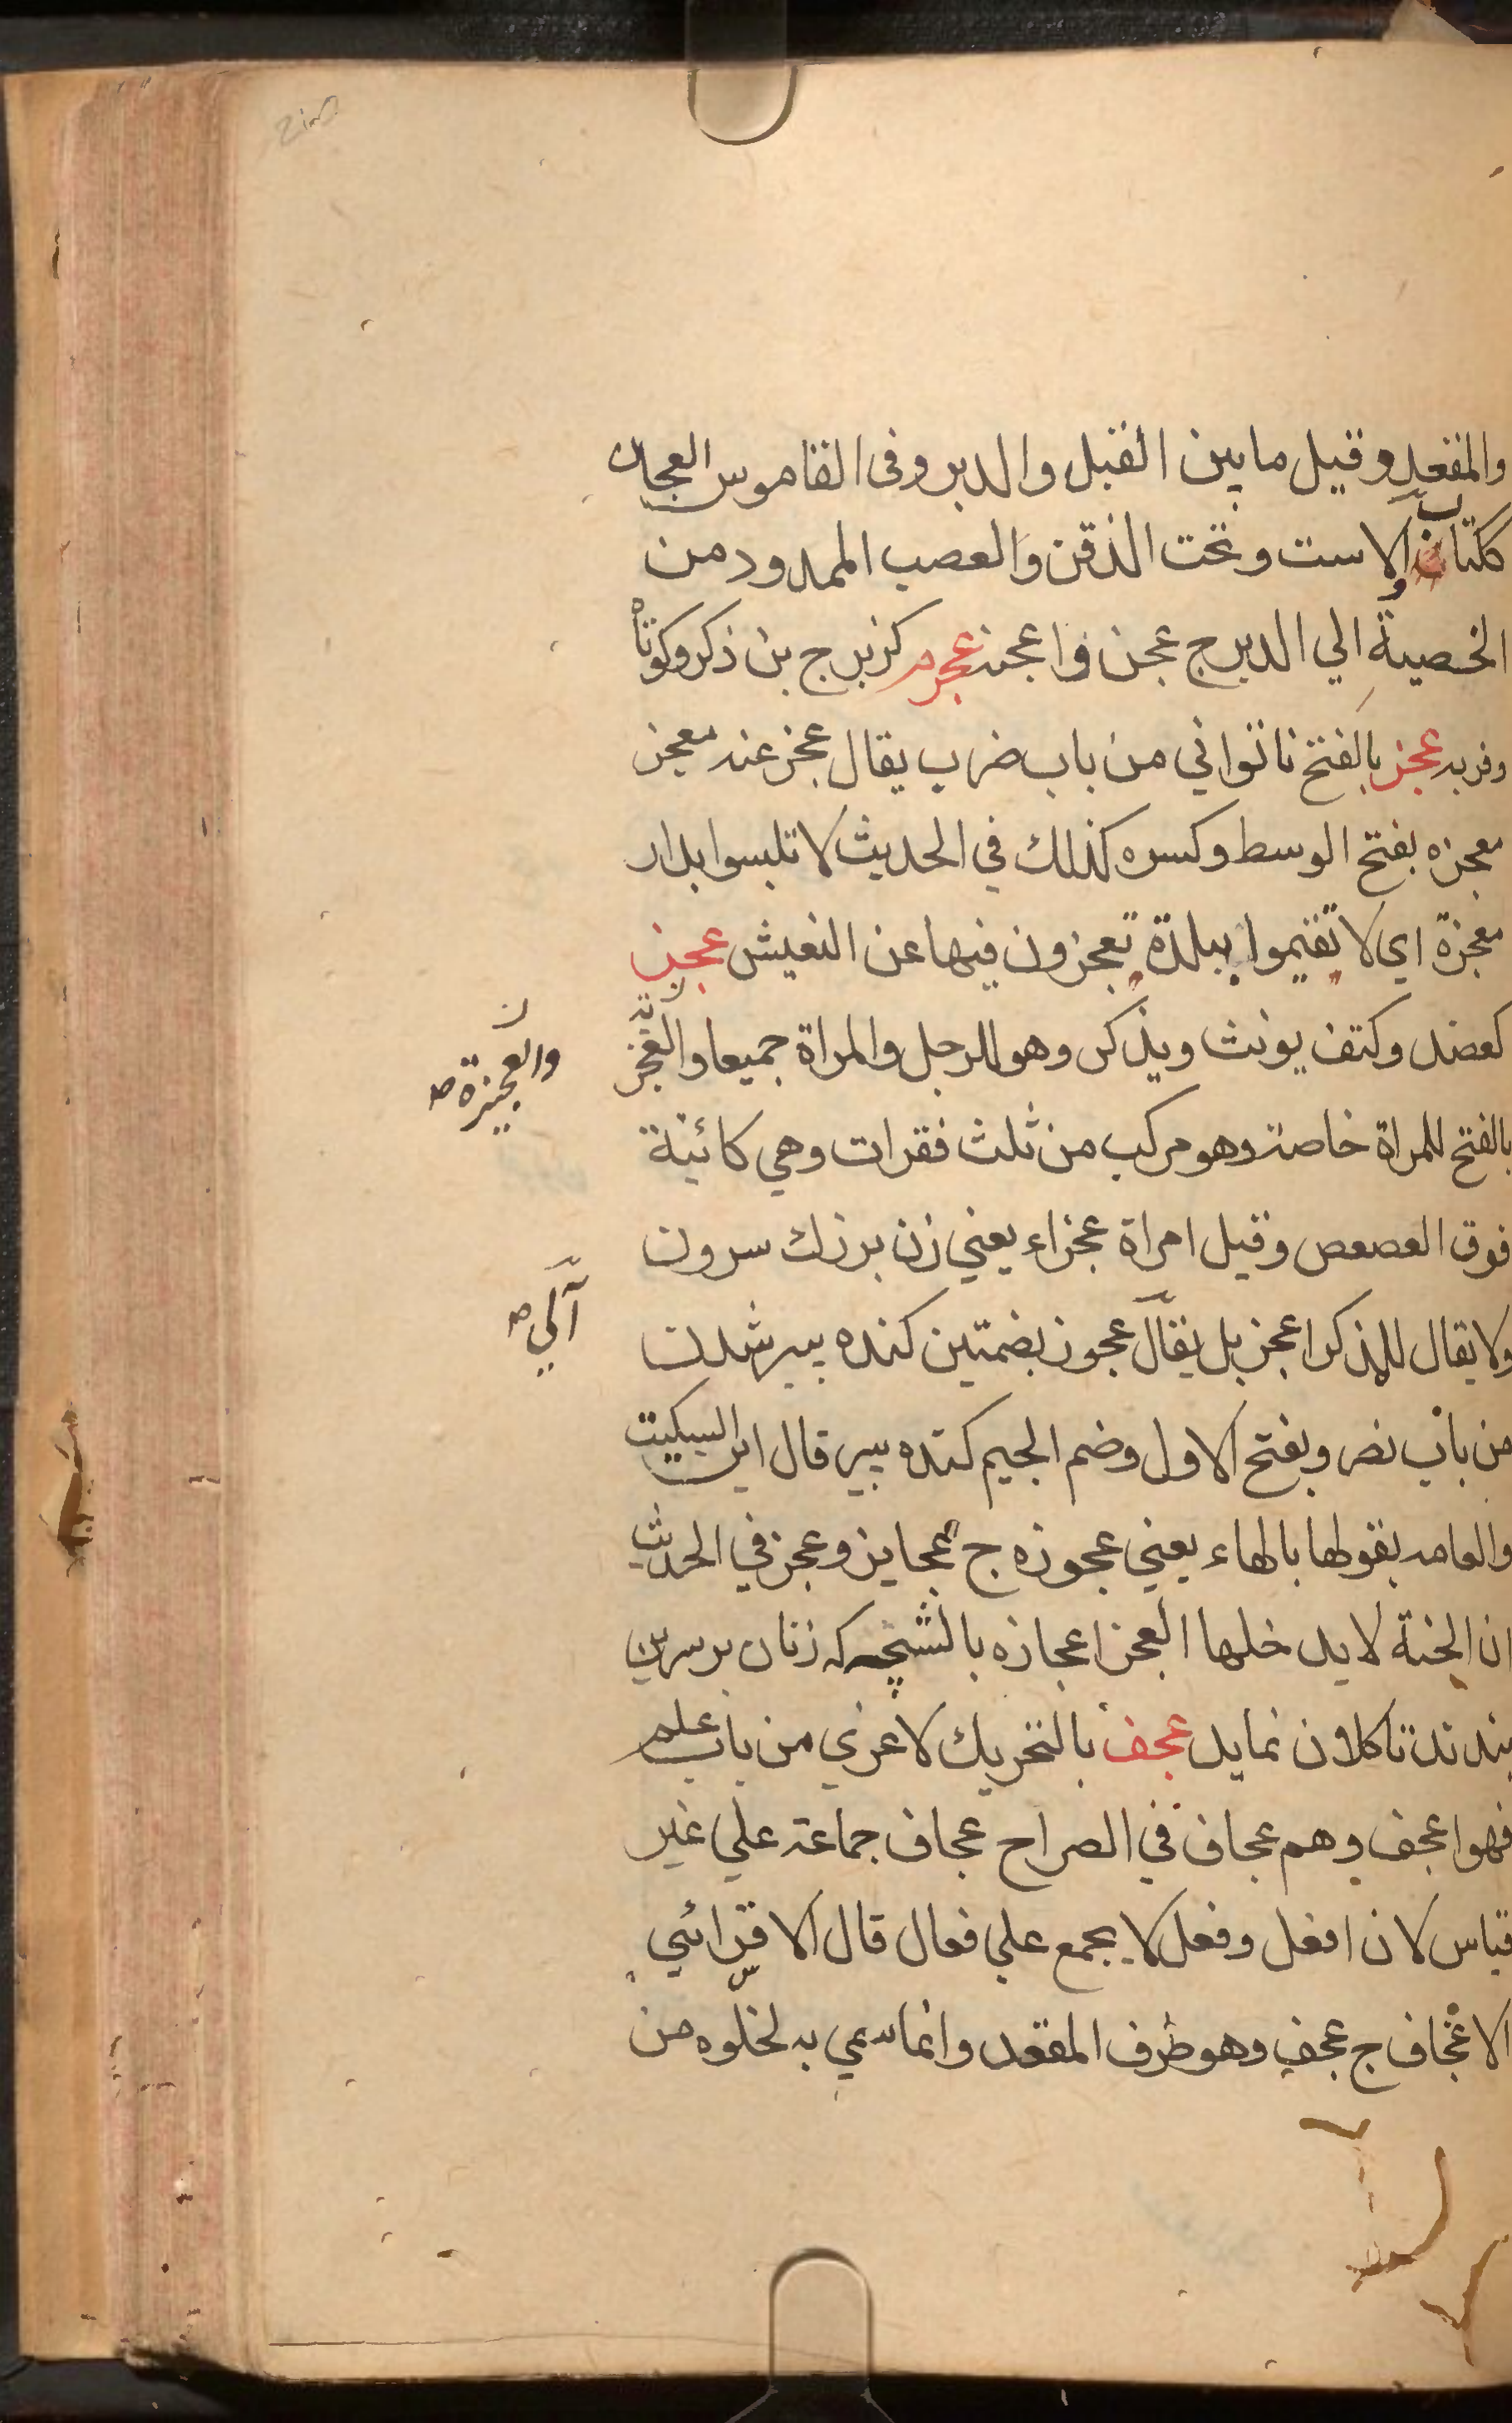 والمقعد وقيل ما بين القبل والدبر وفى القاموس العجان
ككتاب الاست وتحت الذقن والعصب الممدود من
الخصية الي الدبر ج عجن واعجنه عجرم كزبرج بن ذكر وكوتاه
وفربه عجز بالفتح ناتواني من باب ضرب يقال عجز عنه معجز
معجزه بفتح الوسط وكسره كذلك في الحديث لا تلبسوا بدار
معجزة اي لا تقيموا ببلدة تعجزون فيها عن التعيش عجز
كعضد وكتف يونث ويذكر وهو للرجل والمراة جميعا والعجز
والعجيزة صح
بالفتح للمراة خاصة وهو مركب من ثلث فقرات وهي كائنة
فوق العصعص وقيل امراة عجزاء يعني زن بزرك سرون
ولا يقال للمذكر اعجز بل يقال عجوز بضمتين كنده بير شدن
آلي صح
من باب نصر وبفتح الاول وضم الجيم كنده بير قال ابن السكيت
والعامه يقولها بالهاء يعني عجوزه ج عجايز وعجز في الحديث
ان الجنة لا يدخلها العجز اعجازه بالشتچه كه زنان بر سرين
بندند تا كلان نمايد عجف بالتحريك لاغري من باب علم
فهو اعجف وهم عجاف في الصراح عجاف جماعة علي غير
قياس لان افعل وفعل لا يجمع علي فعال قال الاقسرائي
الاعجاف ج عجف وهو طرف المقعد وانما سمي به لخلوه من